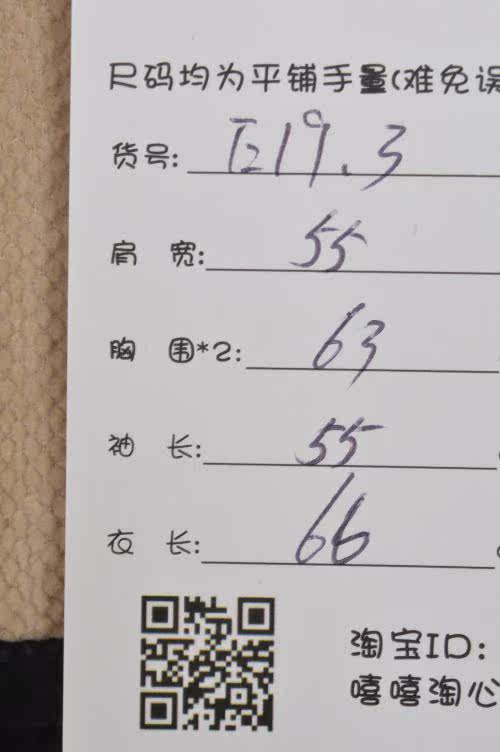 尺码均为平铺手量(难免误
货号: E19.3
肩 宽: 55
胸 围*2: 63
袖 长: 55
衣 长: 66
淘宝ID:
嘻嘻淘心